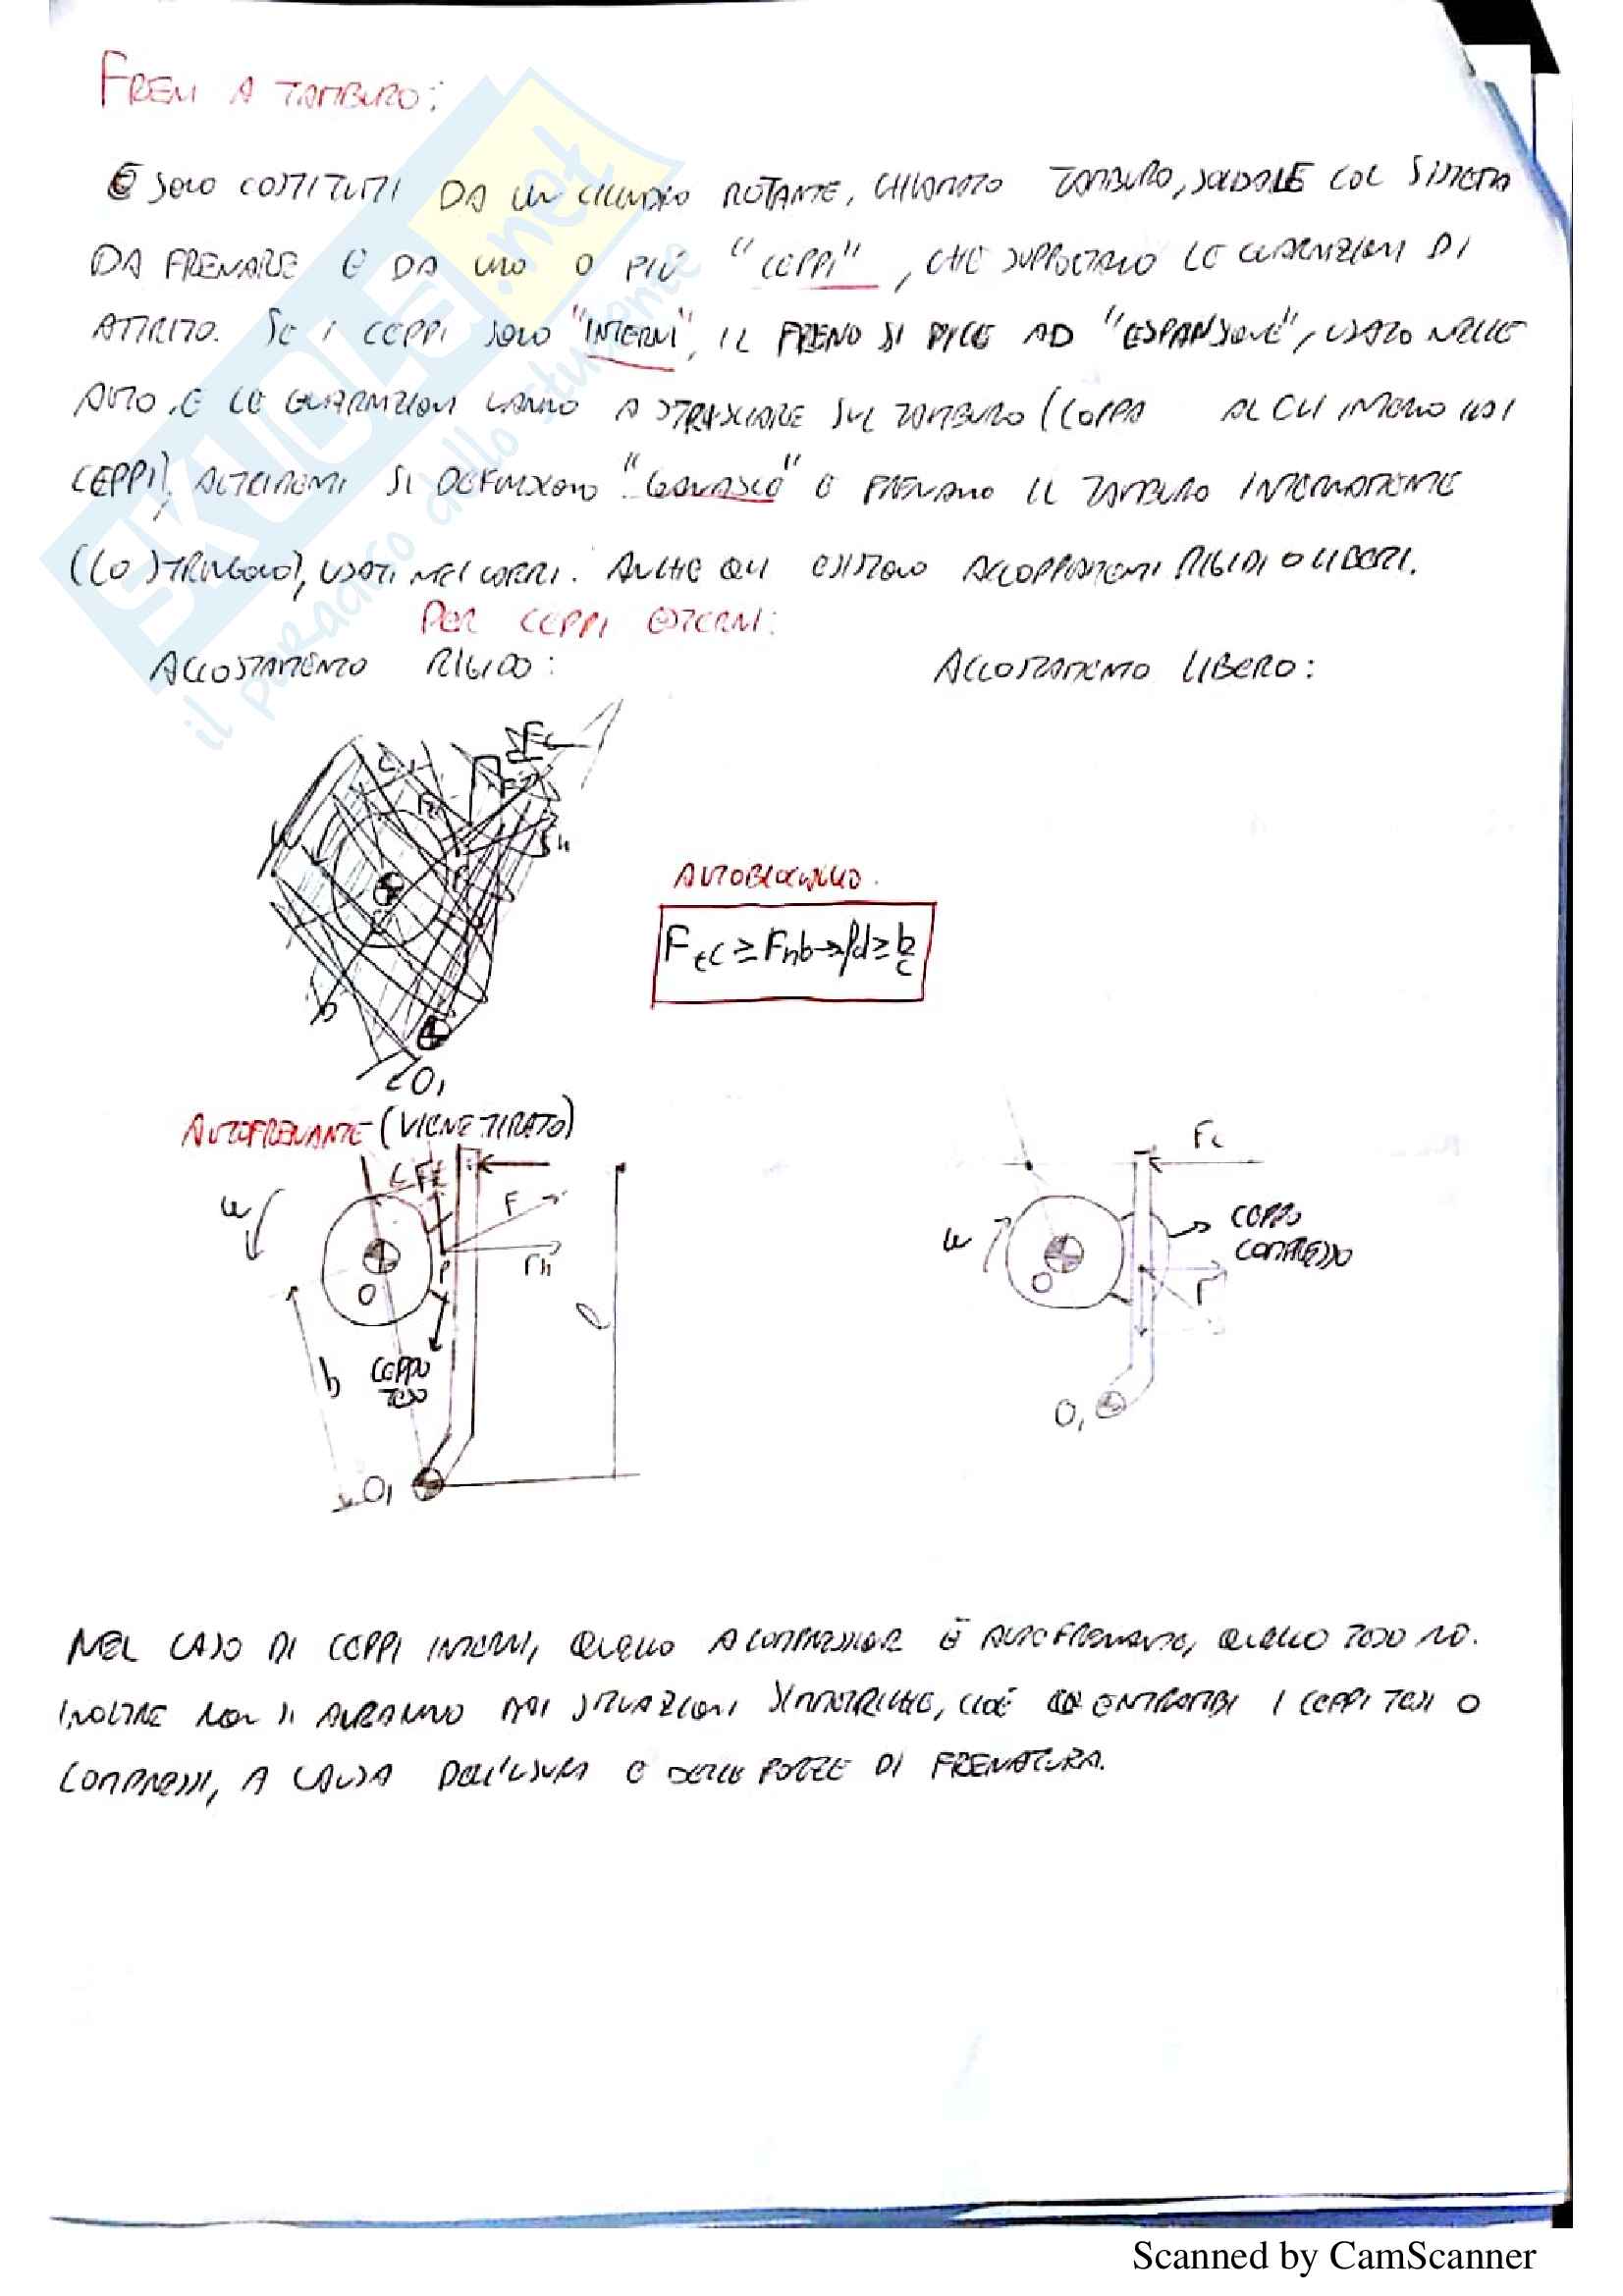 FRENI A TAMBURO:
SONO COSTITUITI DA UN CILINDRO ROTANTE, CHIAMATO TAMBURO, SOLIDALE COL SISTEMA
DA FRENARE E DA UNO O PIÙ "CEPPI", CHE SUPPORTANO LE GUARNIZIONI DI
ATTRITO. SE I CEPPI SONO "INTERNI", IL FRENO SI DICE AD "ESPANSIONE", USATO NELLE
AUTO, E LE GUARNIZIONI VANNO A STRISCIARE SUL TAMBURO (COPPA AL CUI INTERNO HAI
CEPPI), ALTRIMENTI SI DEFINISCONO "GANASCE" E FRENANO IL TAMBURO INTERNAMENTE
(LO STRINGONO), USATI NEI CARRI. ANCHE QUI ESISTONO ACCOPPIAMENTI RIGIDI O LIBERI.
PER CEPPI ESTERNI:
ACCOSTAMENTO RIGIDO: ACCOSTAMENTO LIBERO:
AUTOBLOCCAGGIO
Ftc ≥ Fnb → fd ≥ b/c
O1
AUTOFRENANTE (VIENE TIRATO)
c Ft
F
Fn
ω
O
P
b
CEPPO
TESO
l
O1
Fc
ω
O
CEPPO
COMPRESSO
F
O1
NEL CASO DI CEPPI INTERNI, QUELLO A COMPRESSIONE È AUTOFRENANTE, QUELLO TESO NO.
INOLTRE NON SI AVRANNO MAI SITUAZIONI SIMMETRICHE, CIOÈ ENTRAMBI I CEPPI TESI O
COMPRESSI, A CAUSA DELL'USURA E DELLE FORZE DI FRENATURA.
SKUOLA.net
il paradiso dello studente
Scanned by CamScanner